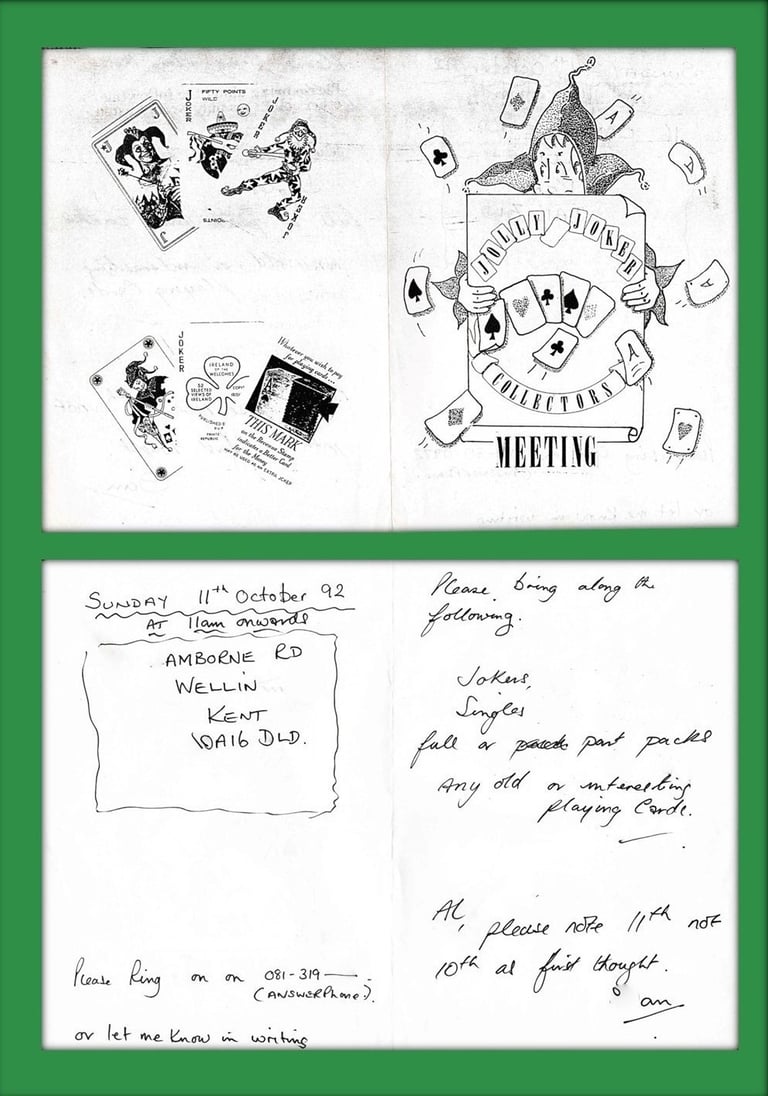 JOKER
FIFTY POINTS
WILD
JOKER
JOKER
POINTS
J
J
JOKER
IRELAND
OF THE
WELCOMES
52
SELECTED
VIEWS OF
IRELAND
Whatever you wish to pay
for playing cards...
THIS MARK
on the Revenue Stamp
indicates a Better Card
for the Money
MAY BE USED AS AN EXTRA JOKER
JOLLY JOKER
A
A
A
A
COLLECTORS
MEETING
SUNDAY 11th October 92
AT 11am onwards
AMBORNE RD
WELLIN
KENT
DA16 DLD.
Please Ring on on 081-319
(ANSWERPhone).
or let me know in writing
Please bring along the
following.
Jokers,
Singles
full or part packs
any old or interesting
playing Cards.
Al, please note 11th not
10th as first thought.
an